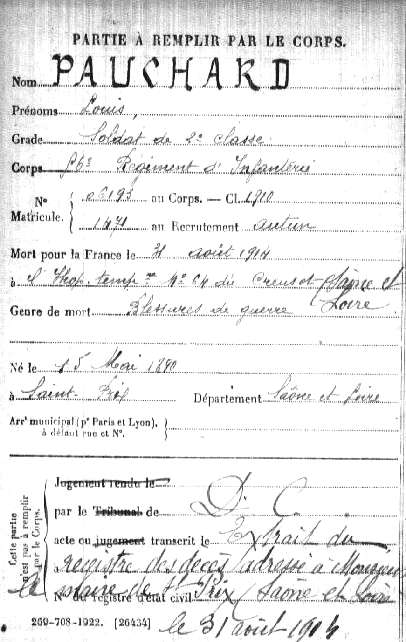 PARTIE À REMPLIR PAR LE CORPS.
Nom PAUCHARD
Prénoms Louis,
Grade Soldat de 2e classe
Corps Régiment d'Infanterie
N° Matricule. 06193 au Corps. — Cl. 1910
1471 au Recrutement Autun
Mort pour la France le 31 août 1914
à l'Hop. temp. re N° 64 du Creusot Saône et Loire
Genre de mort Blessures de guerre
Né le 15 Mai 1890
à Saint-Prix Département Saône et Loire
Arrt municipal (pr Paris et Lyon),
à défaut rue et N°.
Cette partie n'est pas à remplir par le Corps.
Jugement rendu le
par le Tribunal de D. C.
acte ou jugement transcrit le Extrait du
registre des décès adressé à Monsieur
le Maire de St Prix Saône et Loire
N° du registre d'état civil
le 31 août 1914
269-708-1922. [26434]